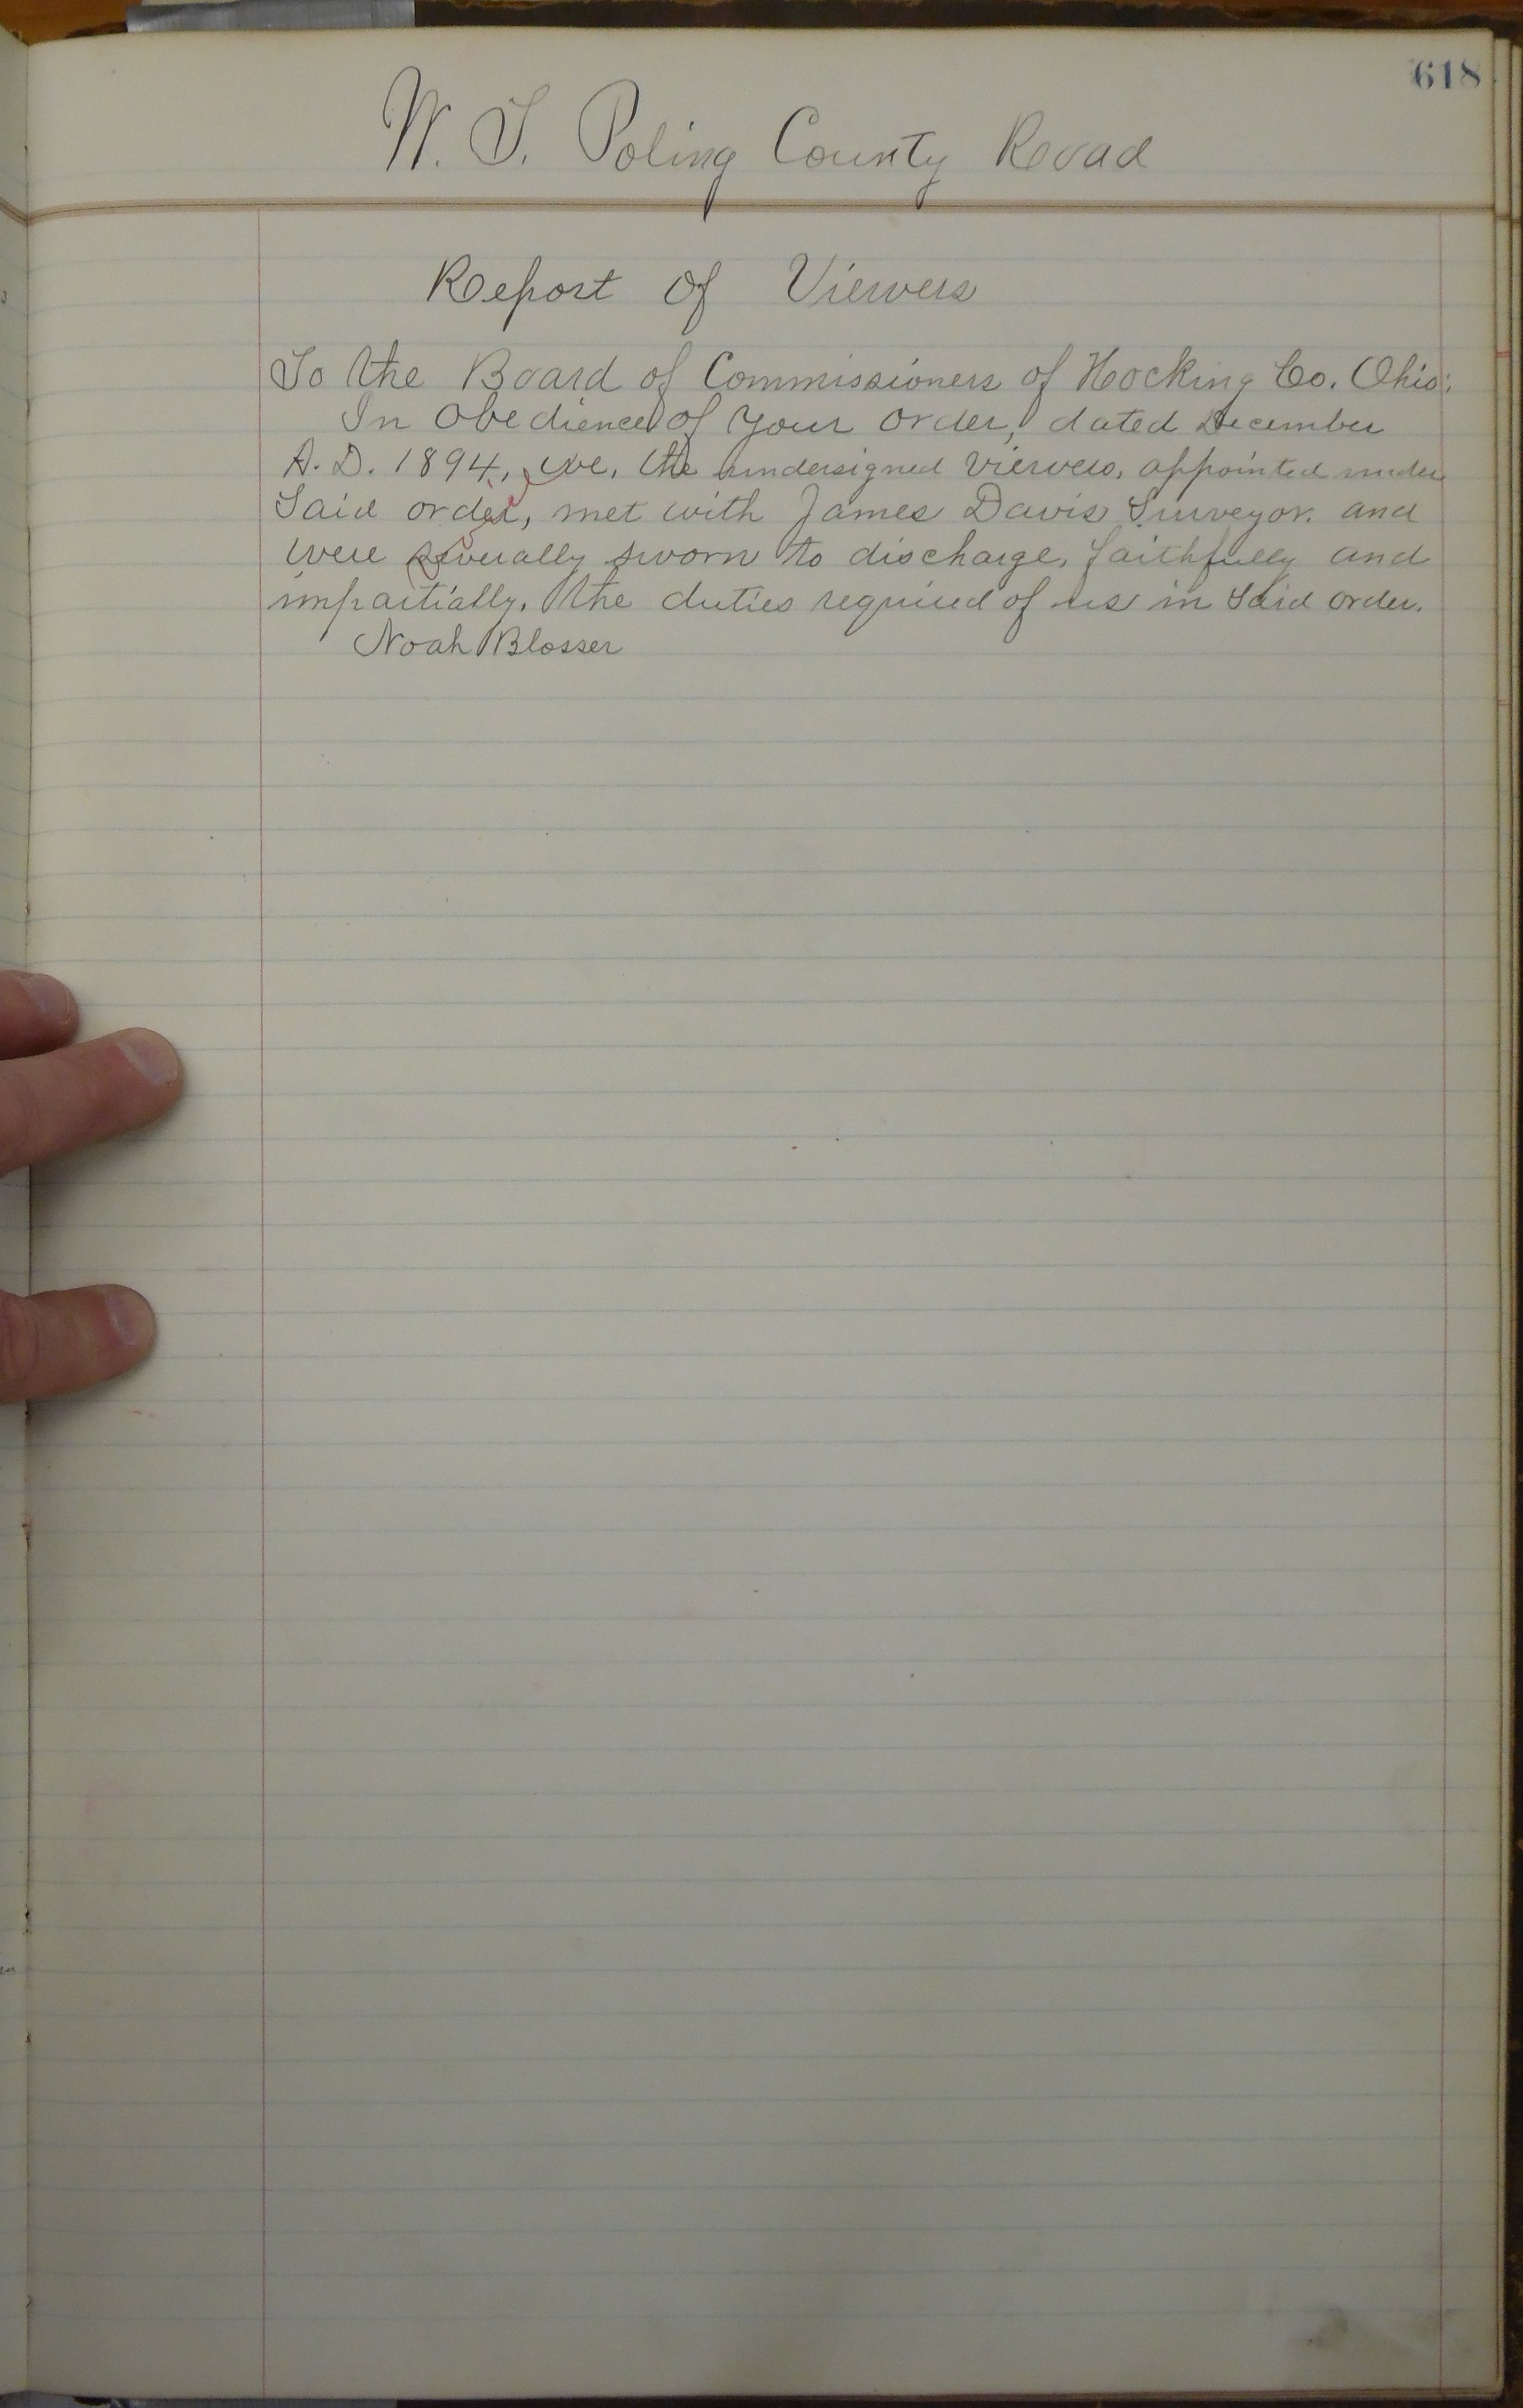 618
W. T. Poling County Road
Report of Viewers
To the Board of Commissioners of Hocking Co. Ohio:
In Obedience of your order, dated December
A. D. 1894, we, the undersigned viewers, appointed under
Said order, met with James Davis Surveyor. and
were severally sworn to discharge, faithfully and
impartially, the duties required of us in Said order.
Noah Blosser